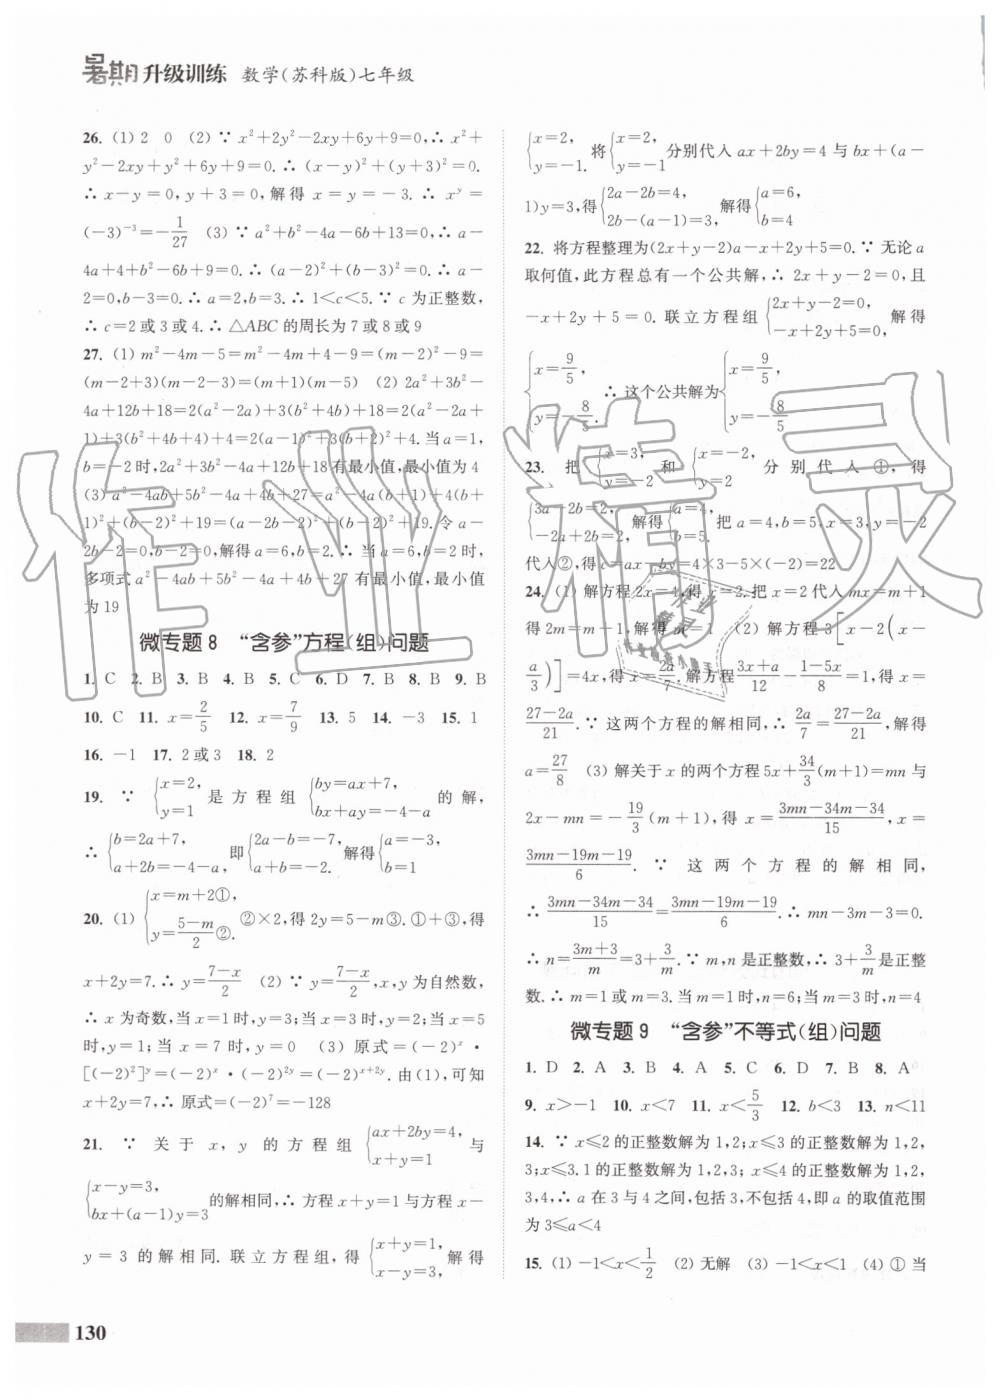 暑期升级训练 数学(苏科版)七年级
26. (1) 2  0  (2) ∵ x²+2y²-2xy+6y+9=0,∴ x²+
y²-2xy+y²+6y+9=0. ∴ (x-y)²+(y+3)²=0.
∴ x-y=0,y+3=0,解得 x=y=-3. ∴ xʸ=
(-3)⁻³=-1/27  (3) ∵ a²+b²-4a-6b+13=0,∴ a²-
4a+4+b²-6b+9=0. ∴ (a-2)²+(b-3)²=0. ∴ a-
2=0,b-3=0. ∴ a=2,b=3. ∴ 1<c<5. ∵ c 为正整数,
∴ c=2 或 3 或 4. ∴ △ABC 的周长为 7 或 8 或 9
27. (1) m²-4m-5=m²-4m+4-9=(m-2)²-9=
(m-2+3)(m-2-3)=(m+1)(m-5)  (2) 2a²+3b²-
4a+12b+18=2(a²-2a)+3(b²+4b)+18=2(a²-2a+
1)+3(b²+4b+4)+4=2(a-1)²+3(b+2)²+4. 当 a=1,
b=-2 时,2a²+3b²-4a+12b+18 有最小值,最小值为 4
(3) a²-4ab+5b²-4a+4b+27=a²-4a(b+1)+4(b+
1)²+(b-2)²+19=(a-2b-2)²+(b-2)²+19. 令 a-
2b-2=0,b-2=0,解得 a=6,b=2. ∴ 当 a=6,b=2 时,
多项式 a²-4ab+5b²-4a+4b+27 有最小值,最小值
为 19
微专题 8  “含参”方程(组)问题
1. C  2. B  3. B  4. B  5. C  6. D  7. B  8. B  9. B
10. C  11. x=2/5  12. x=7/9  13. 5  14. -3  15. 1
16. -1  17. 2 或 3  18. 2
19. ∵ {x=2, y=1 是方程组 {by=ax+7, bx+ay=-4-a 的解,
∴ {b=2a+7, a+2b=-4-a, 即 {2a-b=-7, a+b=-2. 解得 {a=-3, b=1
20. (1) {x=m+2①, y=(5-m)/2 ②. ②×2,得 2y=5-m③. ①+③,得
x+2y=7. ∴ y=(7-x)/2  (2) ∵ y=(7-x)/2,x,y 为自然数,
∴ x 为奇数,当 x=1 时,y=3;当 x=3 时,y=2;当 x=5
时,y=1;当 x=7 时,y=0  (3) 原式=(-2)ˣ·
[(-2)²]ʸ=(-2)ˣ·(-2)²ʸ=(-2)ˣ⁺²ʸ. 由(1),可知
x+2y=7,∴ 原式=(-2)⁷=-128
21. ∵ 关于 x, y 的方程组 {ax+2by=4, x+y=1 与
{x-y=3, bx+(a-1)y=3 的解相同,∴ 方程 x+y=1 与方程 x-
y=3 的解相同. 联立方程组,得 {x+y=1, x-y=3, 解得
{x=2, y=-1. 将 {x=2, y=-1 分别代入 ax+2by=4 与 bx+(a-
1)y=3,得 {2a-2b=4, 2b-(a-1)=3, 解得 {a=6, b=4
22. 将方程整理为(2x+y-2)a-x+2y+5=0. ∵ 无论 a
取何值,此方程总有一个公共解,∴ 2x+y-2=0,且
-x+2y+5=0. 联立方程组 {2x+y-2=0, -x+2y+5=0, 解得
{x=9/5, y=-8/5. ∴ 这个公共解为 {x=9/5, y=-8/5
23. 把 {x=3, y=-2 和 {x=-2, y=2 分别代入①,得
{3a-2b=2, -2a+2b=2, 解得 {a=4, b=5. 把 a=4,b=5,x=3,y=-2
代入②,得 c=ax-by=4×3-5×(-2)=22
24. (1) 解方程 2x=4,得 x=2. 把 x=2 代入 mx=m+1
得 2m=m+1,解得 m=1  (2) 解方程 3[x-2(x-
a/3)]=4x,得 x=2a/7. 解方程 (3x+a)/12-(1-5x)/8=1,得 x=
(27-2a)/21. ∵ 这两个方程的解相同,∴ 2a/7=(27-2a)/21,解得
a=27/8  (3) 解关于 x 的两个方程 5x+34/3(m+1)=mn 与
2x-mn=-19/3(m+1),得 x=(3mn-34m-34)/15,x=
(3mn-19m-19)/6. ∵ 这两个方程的解相同,
∴ (3mn-34m-34)/15=(3mn-19m-19)/6. ∴ mn-3m-3=0.
∴ n=(3m+3)/m=3+3/m. ∵ m,n 是正整数,∴ 3+3/m 是正整
数. ∴ m=1 或 m=3. 当 m=1 时,n=6;当 m=3 时,n=4
微专题 9  “含参”不等式(组)问题
1. D  2. A  3. B  4. A  5. C  6. D  7. B  8. A
9. x>-1  10. x<7  11. x<5/3  12. b<3  13. n<11
14. ∵ x≤2 的正整数解为 1,2;x≤3 的正整数解为 1,2,
3;x≤3.1 的正整数解为 1,2,3; x≤4 的正整数解为 1,2,
3,4,∴ a 在 3 与 4 之间,包括 3,不包括 4,即 a 的取值范围
为 3≤a<4
15. (1) -1<x<1/2  (2) 无解  (3) -1<x<1  (4) ① 当
130
作业精灵